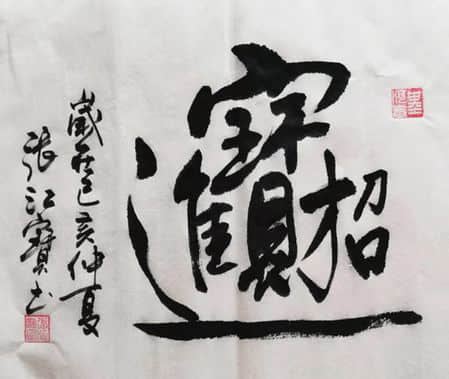 招財進寶
歲在己亥仲夏
張江寶书